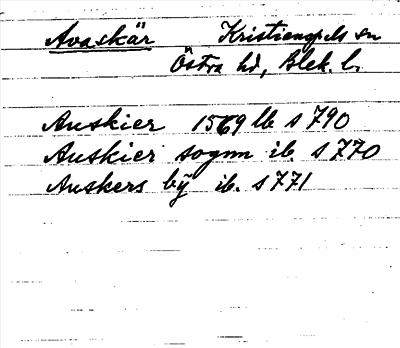 Avaskär Kristianopels sn
Östra hd, Blek. l.
Auskier 1569 lb s 790
Auskier sognn ib. s 770
Auskers bÿ ib. s 771